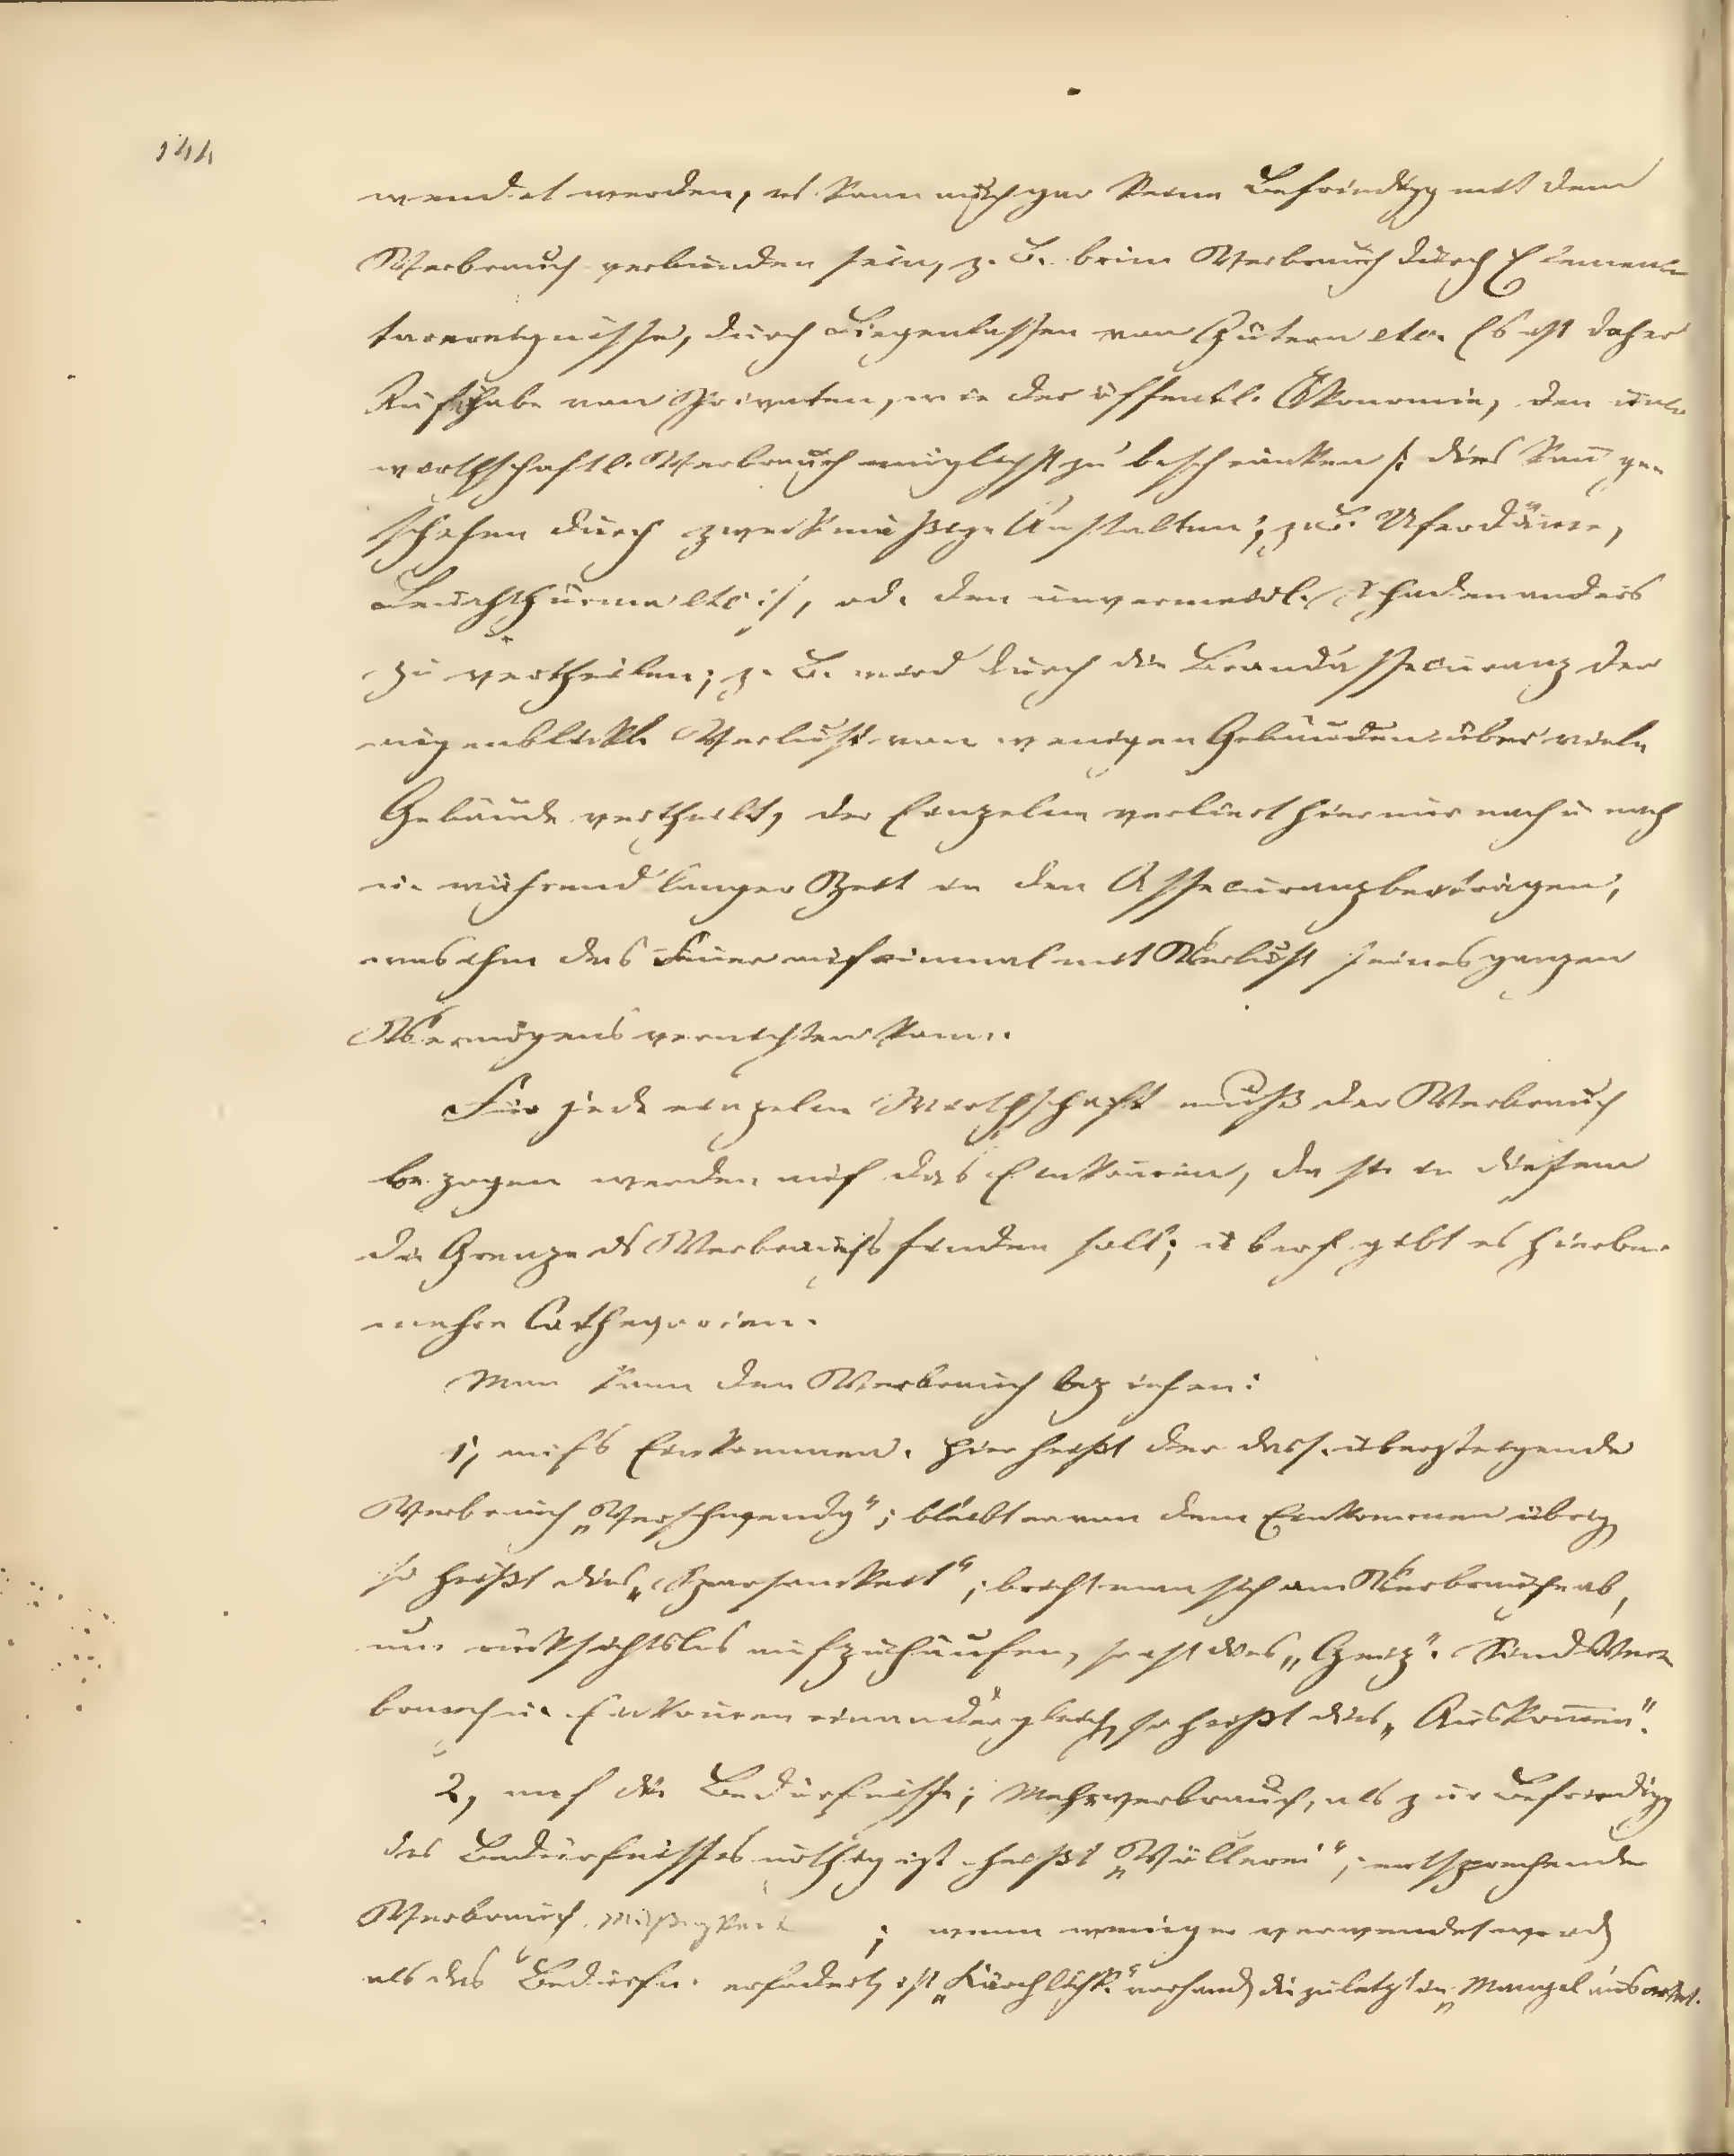 144
wendet werden, es kann auch gar keine Befriedigg mit dem
Verbrauch verbunden sein, z. B. beim Verbrauch durch Elemen-
tarereignisse, durch Liegenlassen von Gütern etc. Es ist daher
Aufgabe von Privaten, wie der öffentl. Ökonomie, den un
wirthschaftl. Verbrauch möglichst zu beschränken /: dies kan̄ ge-
schehen durch zweckmäßige Anstalten; z. B. Uferdäm̄e,
Leuchthürme etc :/, od. den unvermeidl. Schaden anders
zu vertheilen; z. B. wird durch die Brandassecuranz der
augenblickl. Verlust von wenigen Gebäuden über viele
Gebäude vertheilt, der Einzelne verliert hier nur nach u nach
u. während langer Zeit in den Assecuranzbeiträgen,
was ihm das Feuer auf einmal mit Verlust seines ganzen
Vermögens vernichten kann.
Für jede einzelne Wirthschaft muß der Verbrauch
bezogen werden auf das Einkom̄en, da sie in diesem
die Grenze ds Verbrauchs finden soll; u gibt es hierbei
mehre Cathegorien.
Man kann den Verbrauch beziehen:
1, aufs Einkommen. Hier heißt der dass. übersteigende
Verbrauch „Verschwendg“; bleibt von dem Einkommen übrig
so heißt dies „Sparsamkeit“; bricht man sich am Verbrauche ab,
um rücksichtslos aufzuhäufen, so ist dies „Geiz“. Sind Ver-
brauch u. Einkom̄en einander gleich, so heißt dies „Auskom̄en“.
2, auf die Bedürfnisse; Mehrverbrauch, als zur Befriedigg
des Bedürfnisses nöthig ist heißt „Völlerei“; entsprechender
Verbrauch Mäßigkeit ; wenn weniger verwendet wird
als das Bedürfn. erfodert, ist „Kärglichk.“ vorhand. die zuletzt in „Mangel ausartet.